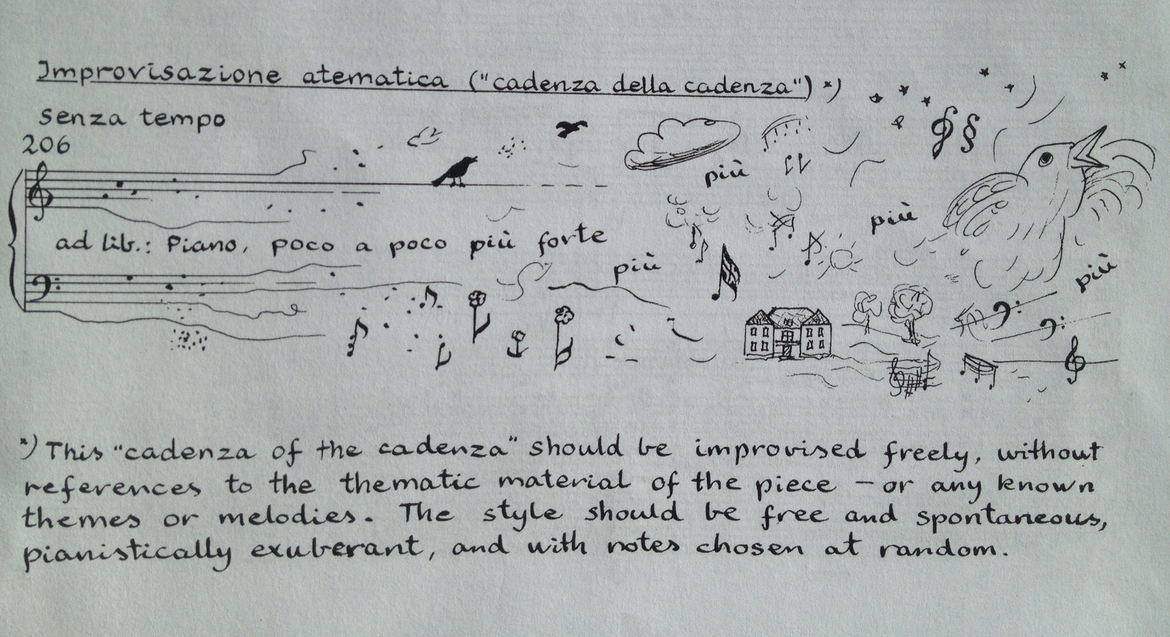 Improvisazione atematica ("cadenza della cadenza") *)
senza tempo
206
ad lib.: Piano, poco a poco più forte
più
più
più
più
*) This "cadenza of the cadenza" should be improvised freely, without
references to the thematic material of the piece – or any known
themes or melodies. The style should be free and spontaneous,
pianistically exuberant, and with notes chosen at random.